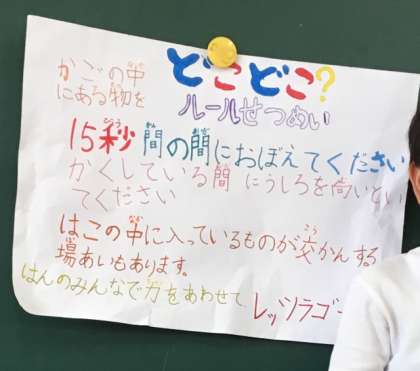 どこどこ?
ルールせつめい
かごの中
にある物を
15秒間の間におぼえてください
かくしている間にうしろを向いてい
てください
はこの中に入っているものが交かんする
場あいもあります。
はんのみんなで力をあわせて
レッツラゴー